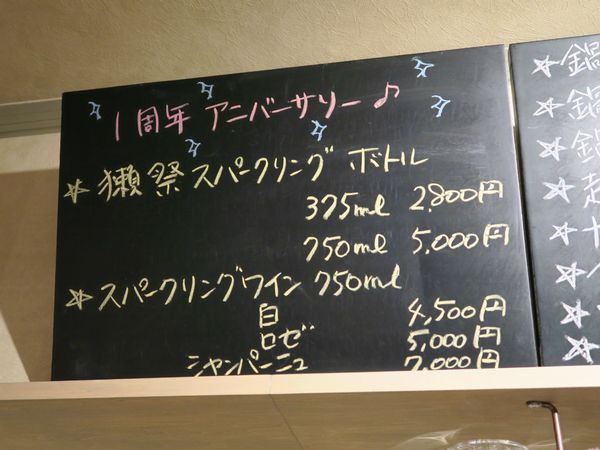 1周年 アニバーサリー♪
☆獺祭スパークリング ボトル
375ml 2,800円
750ml 5,000円
☆スパークリングワイン 750ml
白 4,500円
ロゼ 5,000円
シャンパーニュ 7,000円
☆鍋
☆鍋
☆鍋
☆
☆
☆
☆
☆